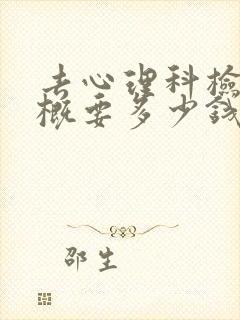 去心理科检
概要多少钱
邵生